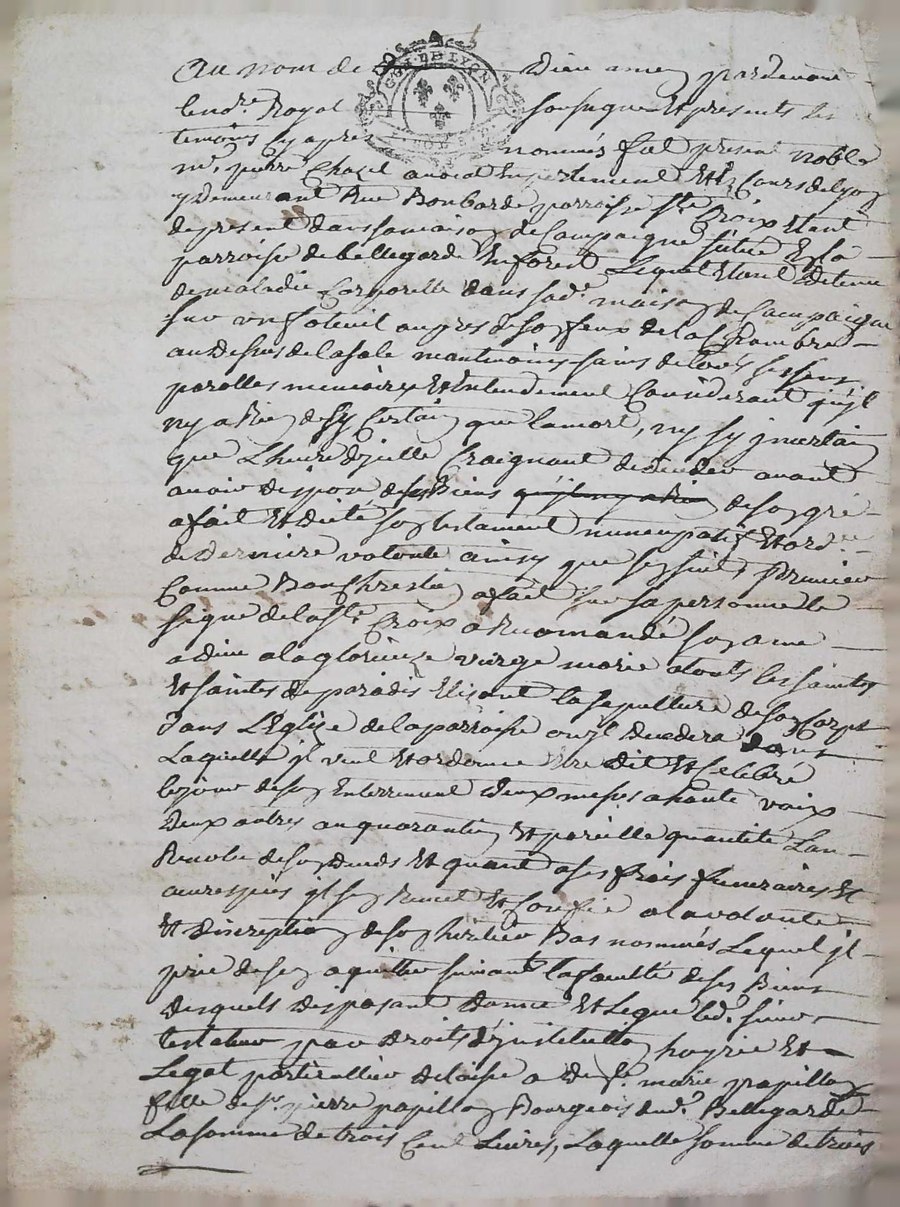 Au nom de Dieu amen pardevant
le no.re Royal soussigne Et presents les
temoins cy apres nommés fut present noble
m.e pierre Chazel avocat En parlement Et Es Cours de lyon
y Demeurant Rue Bombarde parroisse S.te Croix Etant
de present dans sa maison de Campaigne située En la
parroisse de bellegarde En forest Lequel Etant detenu
de maladie Corporelle dans sad.e maison de Campaigne
sur un foteuil aupres de son feux de la Chambre
au dessus de la sale maintenoins sains de tous ses sens
parolles memoires Et Entendement Considerant qu'jl
ny a Rien de sy Certain que la mort, ny sy jncertain
que Lheure djcelle Craignant de deceder avant
avoir disposé de ses Biens de son gré
a fait Et dicté son testament nuncupatif Et ord.ce
de derniere volonté ainsy que sensuit premier
Comme Bon Chrestien a fait sur sa personne le
signe de la S.te Croix a Recomandé son ame
a dieu a la glorieuze vierge marie a touts les saints
Et saintes de paradis Elisant la sepulture de son Corps
dans LEglize de la parroisse ou jl decedera dans
Laquelle jl veut Et ordonne Etre dit Et Celebré
le jour de son Enterrement deux messes a haute voix
Deux autres au quarantin Et pareille quantité Lan
Revolu de son deceds Et quant a ses frais funeraires Et
jl sen Remet Et confie a la volonté
Et discreption de son heritier Bas nommés Lequel jl
prie de sen aquitter suivant la faculté de ses Biens
desquels disposant donne Et Legue led. sieur
testateur par droits d'jnstitution hoyrie Et
Legat particullier delaisse a d.e marie papillon
fille de s.r pierre papillon Bourgeois dud. Bellegarde
La somme de trois Cent Livres, Laquelle somme de trois
GEN. DE LYON